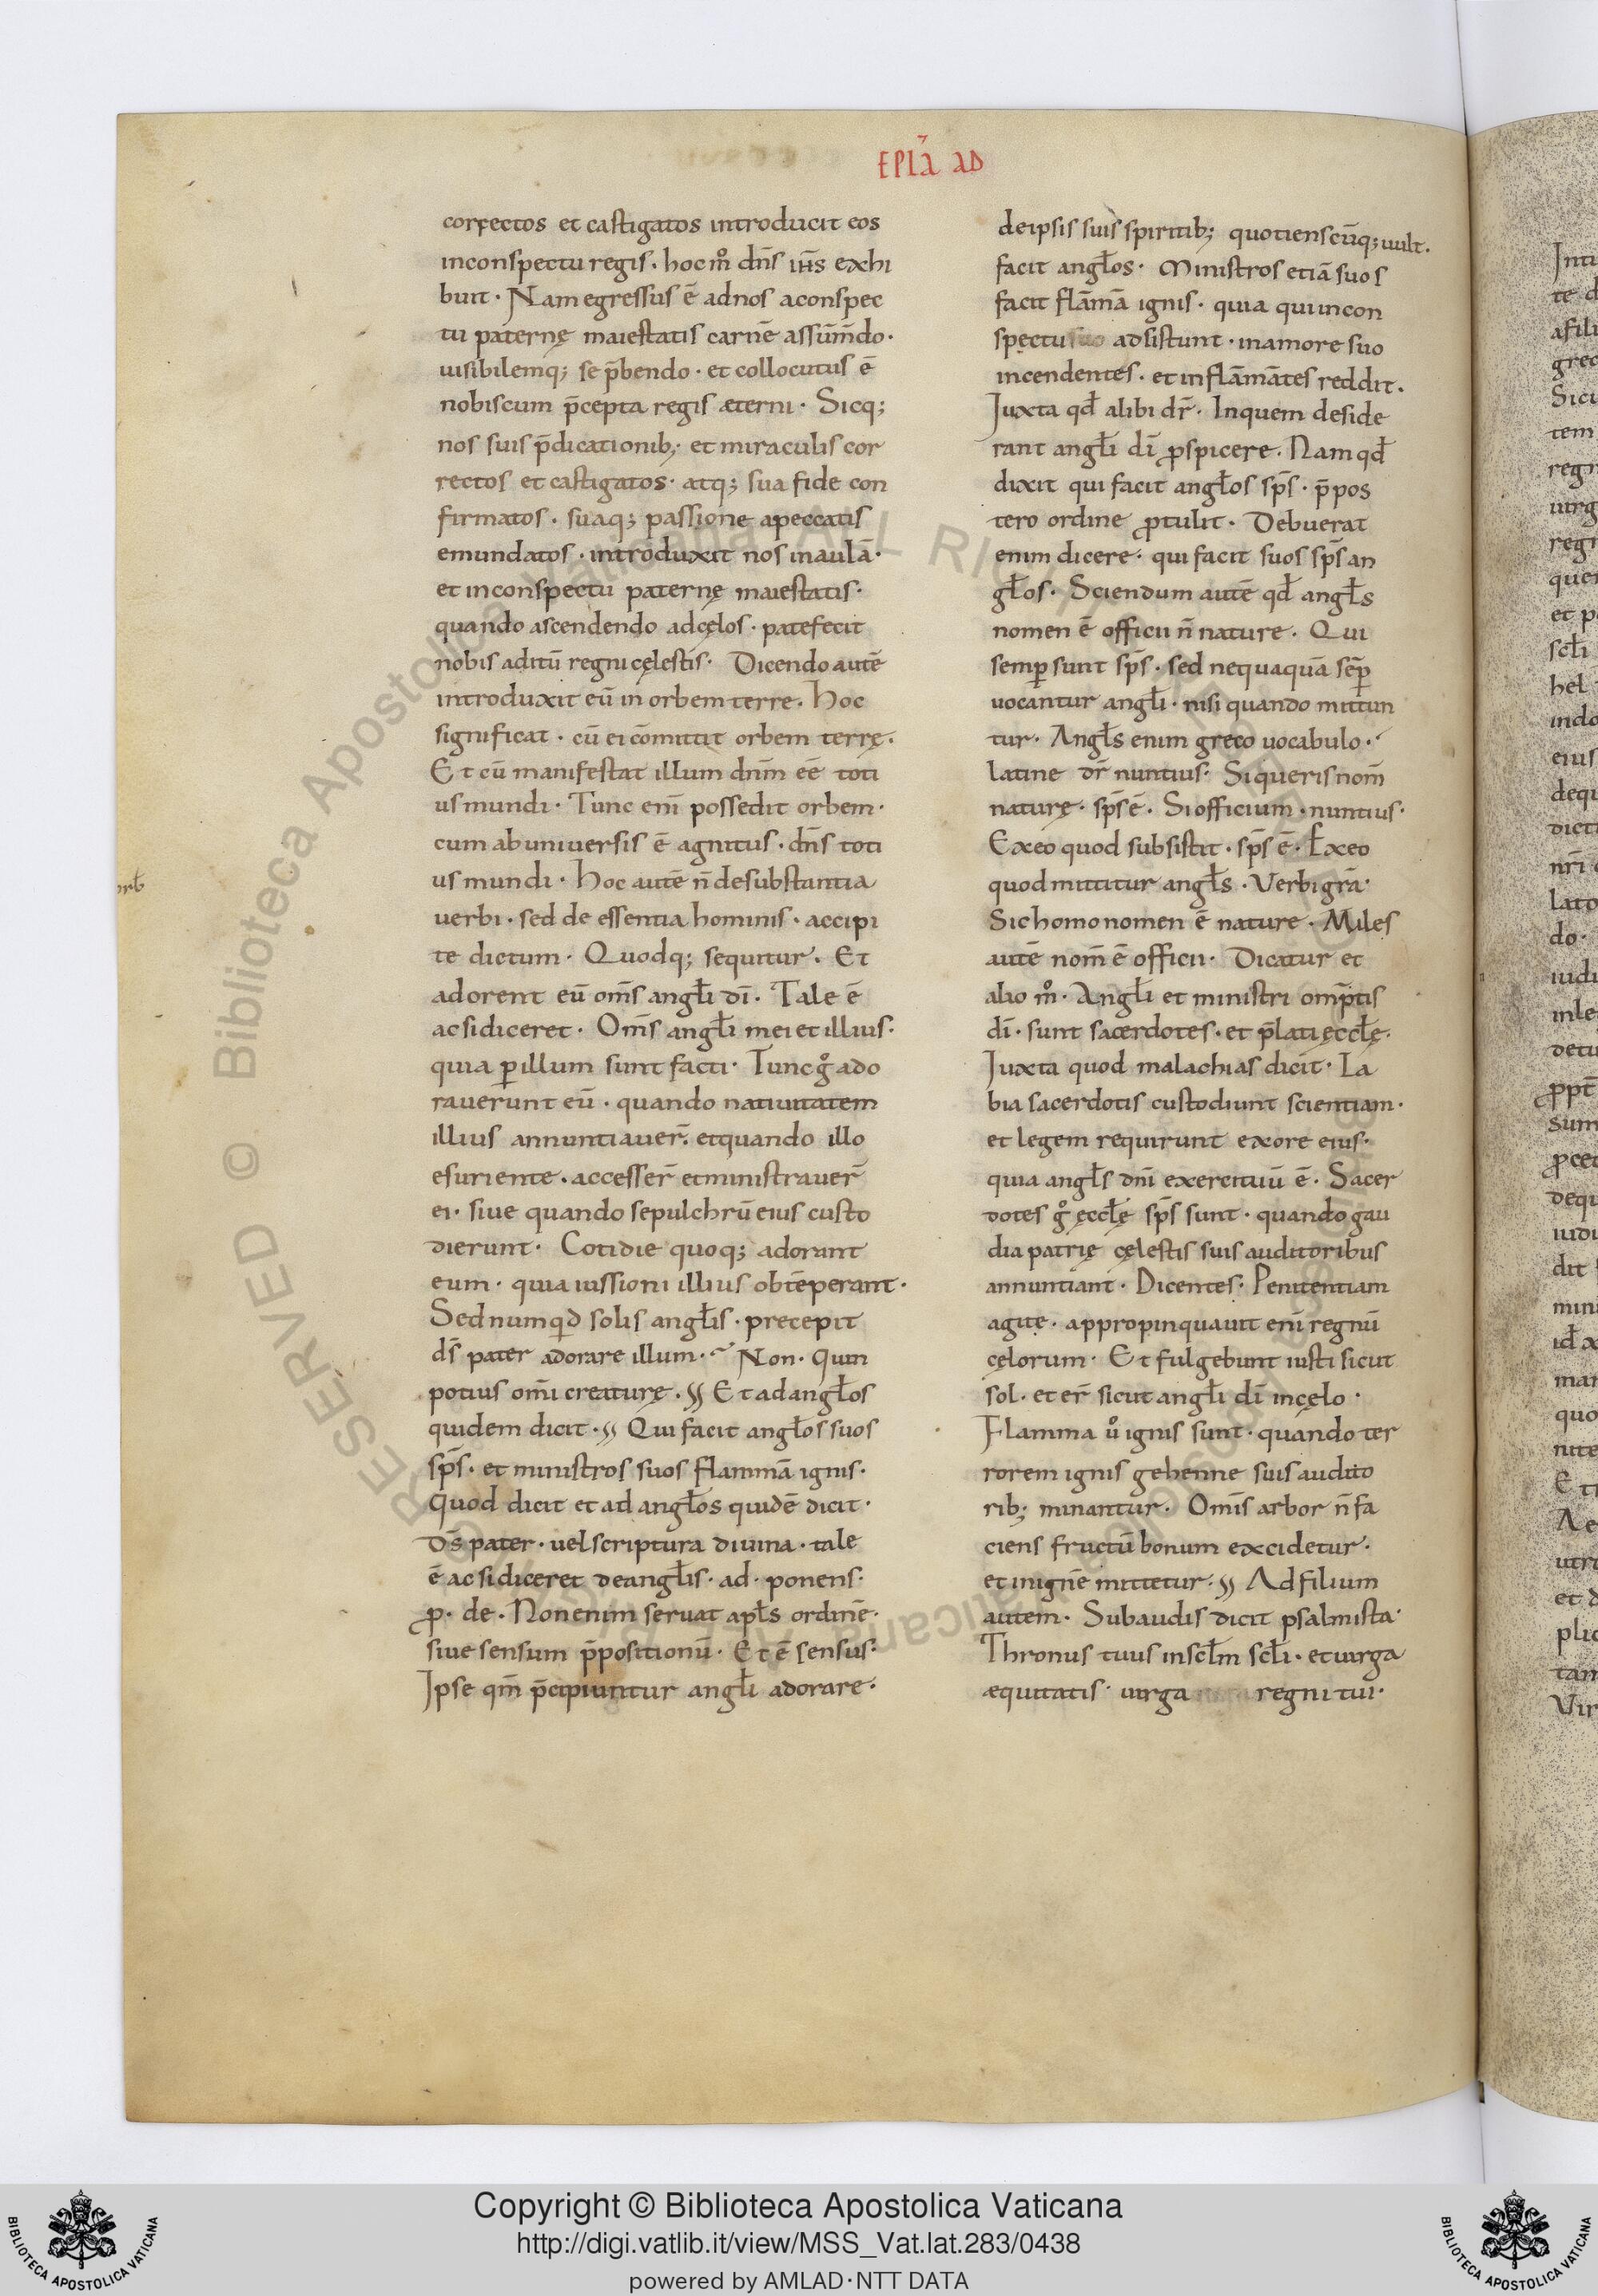 EPLA᷃ AD
correctos et castigatos introducit eos
inconspectu regis · hoc mͦ dn̄s ih̄s exhi
buit · Nam egressus ē adnos aconspec
tu paternę maiestatis carnē assūm̄do ·
uisibilemq; se p̄bendo · et collocutus ē
nobiscum p̄cepta regis æterni · Sicq;
nos suis p̄dicationib; et miraculis cor
rectos et castigatos · atq; sua fide con
firmatos · suaq; passione apeccatis
emundatos · introduxit nos inaulā ·
et inconspectu paternę maiestatis ·
quando ascendendo adcęlos · patefecit
nobis aditū regni cęlestis · Dicendo autē
introduxit eū in orbem terre . Hoc
significat · cū ei cōmittit orbem terrę .
Et cū manifestat illum dn̄m eē toti
us mundi · Tunc eni̅ possedit orbem ·
cum ab uniuersis ē agnitus · dn̄s toti
us mundi · Hoc autē n̄ desubstantia
uerbi · sed de essentia hominis · accipi
te dictum · Quodq; sequitur . Et
adorent eū om̄s angłi dī · Tale ē
acsidiceret · Om̄s angłi mei et illius ·
quia ꝑ illum sunt facti · Tunc gͦ ado
rauerunt eū · quando natiuitatem
illius annuntiauer̄ · etquando illo
esuriente · accesser̄ etministrauer̄
ei · siue quando sepulchrū eius custo
dierunt · Cotidie quoq; adorant
eum · quia iussioni illius obtēperant ·
Sed numqd solis angłis · precepit
ds̄ pater adorare illum · Non · Quin
potius om̄i creaturę · Et ad angłos
quidem dicit · Qui facit angłos suos
sp̄s · et ministros suos flammā ignis ·
Quod dicit et ad angłos quidē dicit ·
Ds̄ pater · uel scriptura diuina · tale
ē ac si diceret de angłis · ad · ponens ·
ꝓ · de · Non enim seruat apłs ordinē ·
siue sensum p̄positionū · Et ē sensus ·
Ipse qm̄ p̄cipiuntur angłi adorare ·
deipsis suis spiritib; quotienscūq; uult ·
facit angłos · Ministros etiā suos
facit flāmā ignis · quia qui incon
spectu suo adsistunt · inamore suo
incendentes · et inflāmātes reddit .
Juxta qđ alibi dr̄ · Inquem deside
rant angłi dī ꝓspicere . Nam qđ
dixit qui facit angłos sp̄s · p̄pos
tero ordine ꝓtulit · Debuerat
enim dicere · qui facit suos sp̄s an
głos · Sciendum autē qđ angłs
nomen ē officii n̄ nature · Qui
semꝑ sunt sp̄s · sed nequaquā sēꝑ
uocantur angłi · nisi quando mittun
tur · Angłs enim greco uocabulo ·
latine dr̄ nuntius · Si queris nom̄
naturę · sp̄s ē · Si officium · nuntius ·
Exeo quod subsistit · sp̄s ē · Exeo
quod mittitur angłs · Verbi grā ·
Sic homo nomen ē nature · Miles
autē nom̄ ē officii · Dicatur et
alio mͦ · Angłi et ministri omp̄tis
dī · sunt sacerdotes · et p̄lati ęccłę ·
Juxta quod malachias dicit · La
bia sacerdotis custodiunt scientiam ·
et legem requirunt exore eius ·
quia angłs dn̄i exercituū ē · Sacer
dotes gͦ ęccłę sp̄s sunt · quando gau
dia patrię cęlestis suis auditoribus
annuntiant · Dicentes · Penitentiam
agite · appropinquauit eni̅ regnū
cęlorum · Et fulgebunt iusti sicut
sol · et er̄ sicut angłi dī incęlo ·
Flamma uͦ ignis sunt · quando ter
rorem ignis gehenne suis audito
rib; minantur · Om̄is arbor n̄ fa
ciens fructū bonum excidetur ·
et inignē mittetur · Ad filium
autem · Subaudis dicit psalmista ·
Thronus tuus inscłm scłi · et uirga
æquitatis · uirga regni tui ·
Copyright © Biblioteca Apostolica Vaticana
http://digi.vatlib.it/view/MSS_Vat.lat.283/0438
powered by AMLAD·NTT DATA
BIBLIOTECA APOSTOLICA VATICANA
BIBLIOTECA APOSTOLICA VATICANA